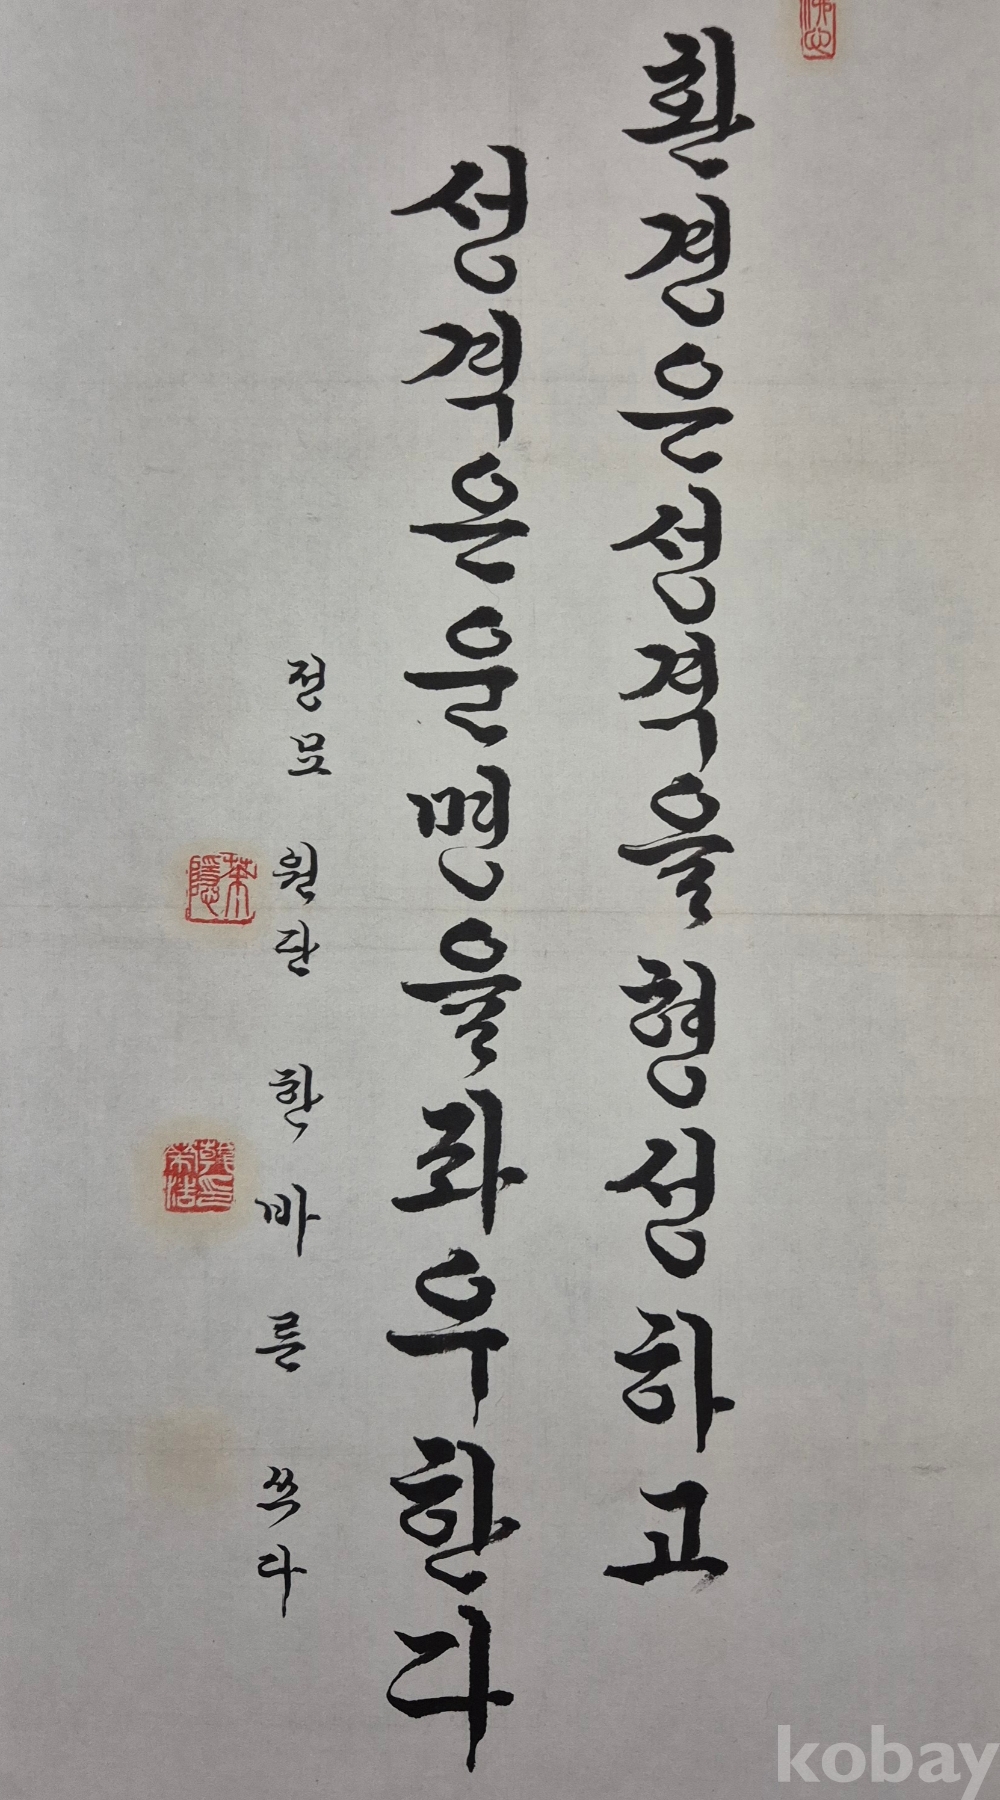 환경은성격을형성하고
성격은운명을좌우한다
정묘 원단 한바름 쓰다
kobay